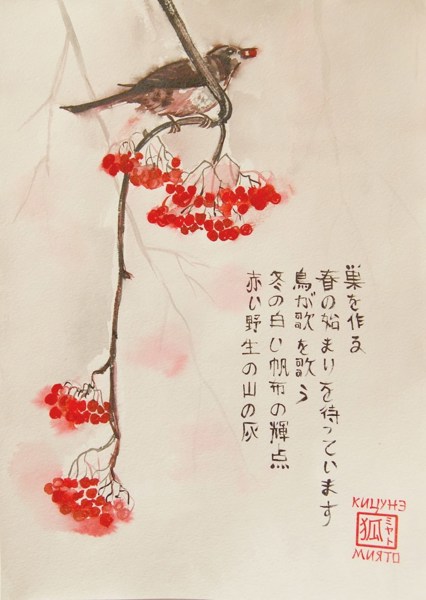 巣を作る
春の始まりを待っています
鳥が歌を歌う
冬の白い帆布の輝点
赤い野生の山の灰
КИЦУНЭ
狐
ミヤト
МИЯТО